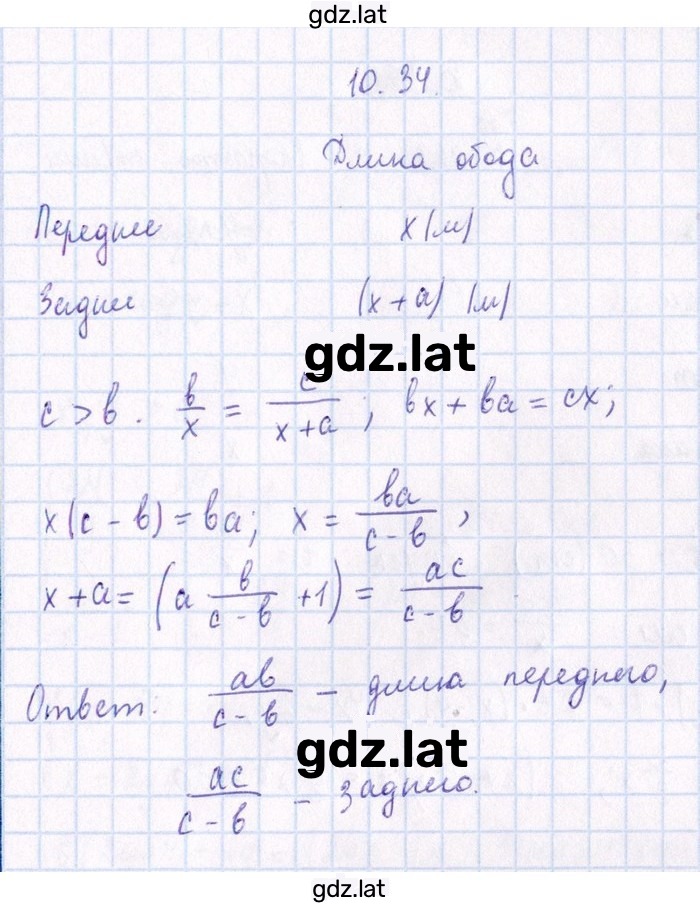 gdz.lat
10.34.
Длина обода
Переднее x (м)
Заднее (x + a) (м)
gdz.lat
c > b. b/x = c/(x + a); bx + ba = cx;
x(c - b) = ba; x = ba/(c - b),
x + a = (a b/(c - b) + 1) = ac/(c - b)
Ответ: ab/(c - b) – длина переднего,
gdz.lat
ac/(c - b) – заднего.
gdz.lat